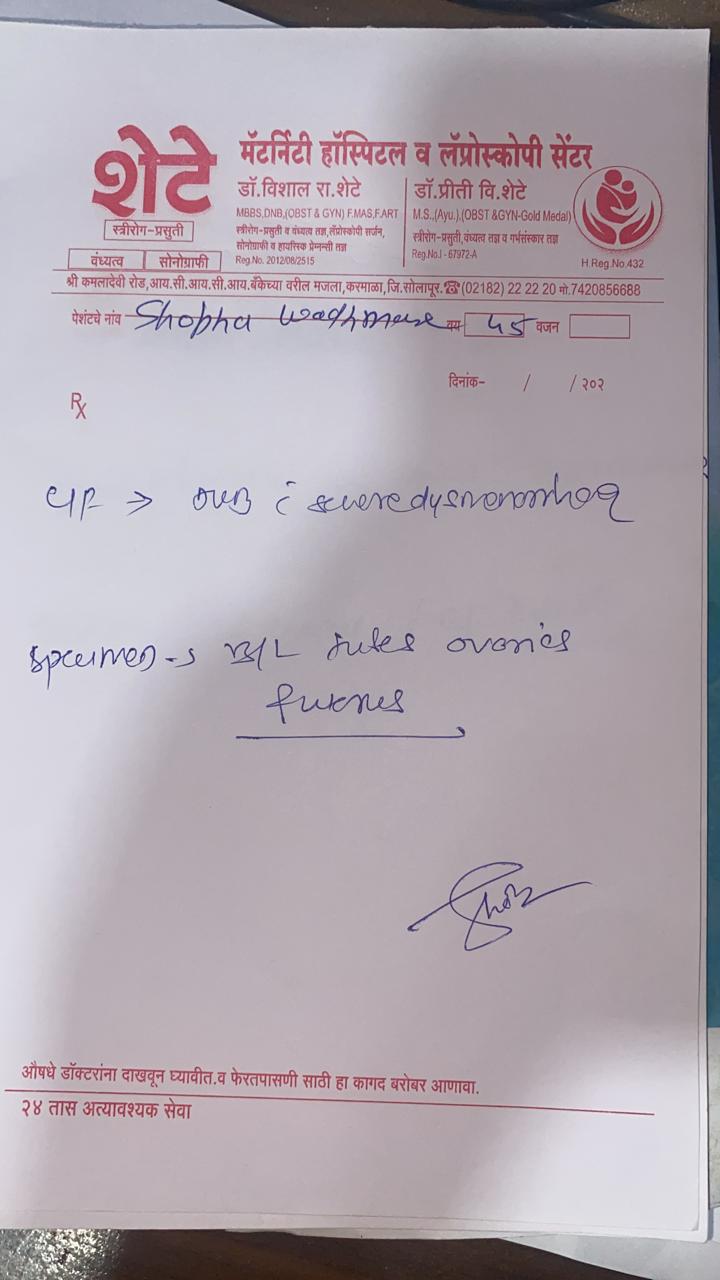 शेटे
मॅटर्निटी हॉस्पिटल व लॅप्रोस्कोपी सेंटर
स्त्रीरोग-प्रसुती
वंध्यत्व सोनोग्राफी
डॉ.विशाल रा.शेटे
MBBS,DNB,(OBST & GYN) F.MAS,F.ART
स्त्रीरोग-प्रसुती व वंध्यत्व तज्ञ,लॅप्रोस्कोपी सर्जन,
सोनोग्राफी व हायरिस्क प्रेग्नन्सी तज्ञ
Reg.No. 2012/08/2515
डॉ.प्रीती वि.शेटे
M.S.,(Ayu.),(OBST &GYN-Gold Medal)
स्त्रीरोग-प्रसुती,वंध्यत्व तज्ञ व गर्भसंस्कार तज्ञ
Reg.No.I - 67972-A
H.Reg.No.432
श्री कमलादेवी रोड,आय.सी.आय.सी.आय.बँकेच्या वरील मजला,करमाळा,जि.सोलापूर.☎(02182) 22 22 20 मो.7420856688
पेशंटचे नांव Shobha वय 45 वजन
दिनांक- / / २०२
Rx
→ severe dysmenorrhoea
specimen → B/L tubes ovaries
औषधे डॉक्टरांना दाखवून घ्यावीत.व फेरतपासणी साठी हा कागद बरोबर आणावा.
२४ तास अत्यावश्यक सेवा